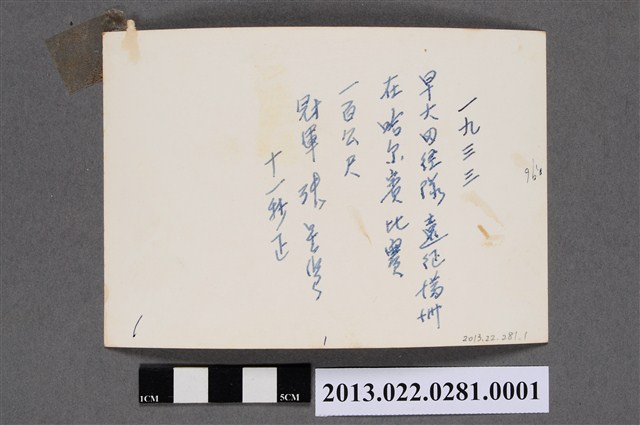 一九三三
早大田径隊遠征満州
在哈尔賓比賽
一百公尺
冠軍 張星賢
十一秒正
2013.22.281.1
1CM
5CM
2013.022.0281.0001